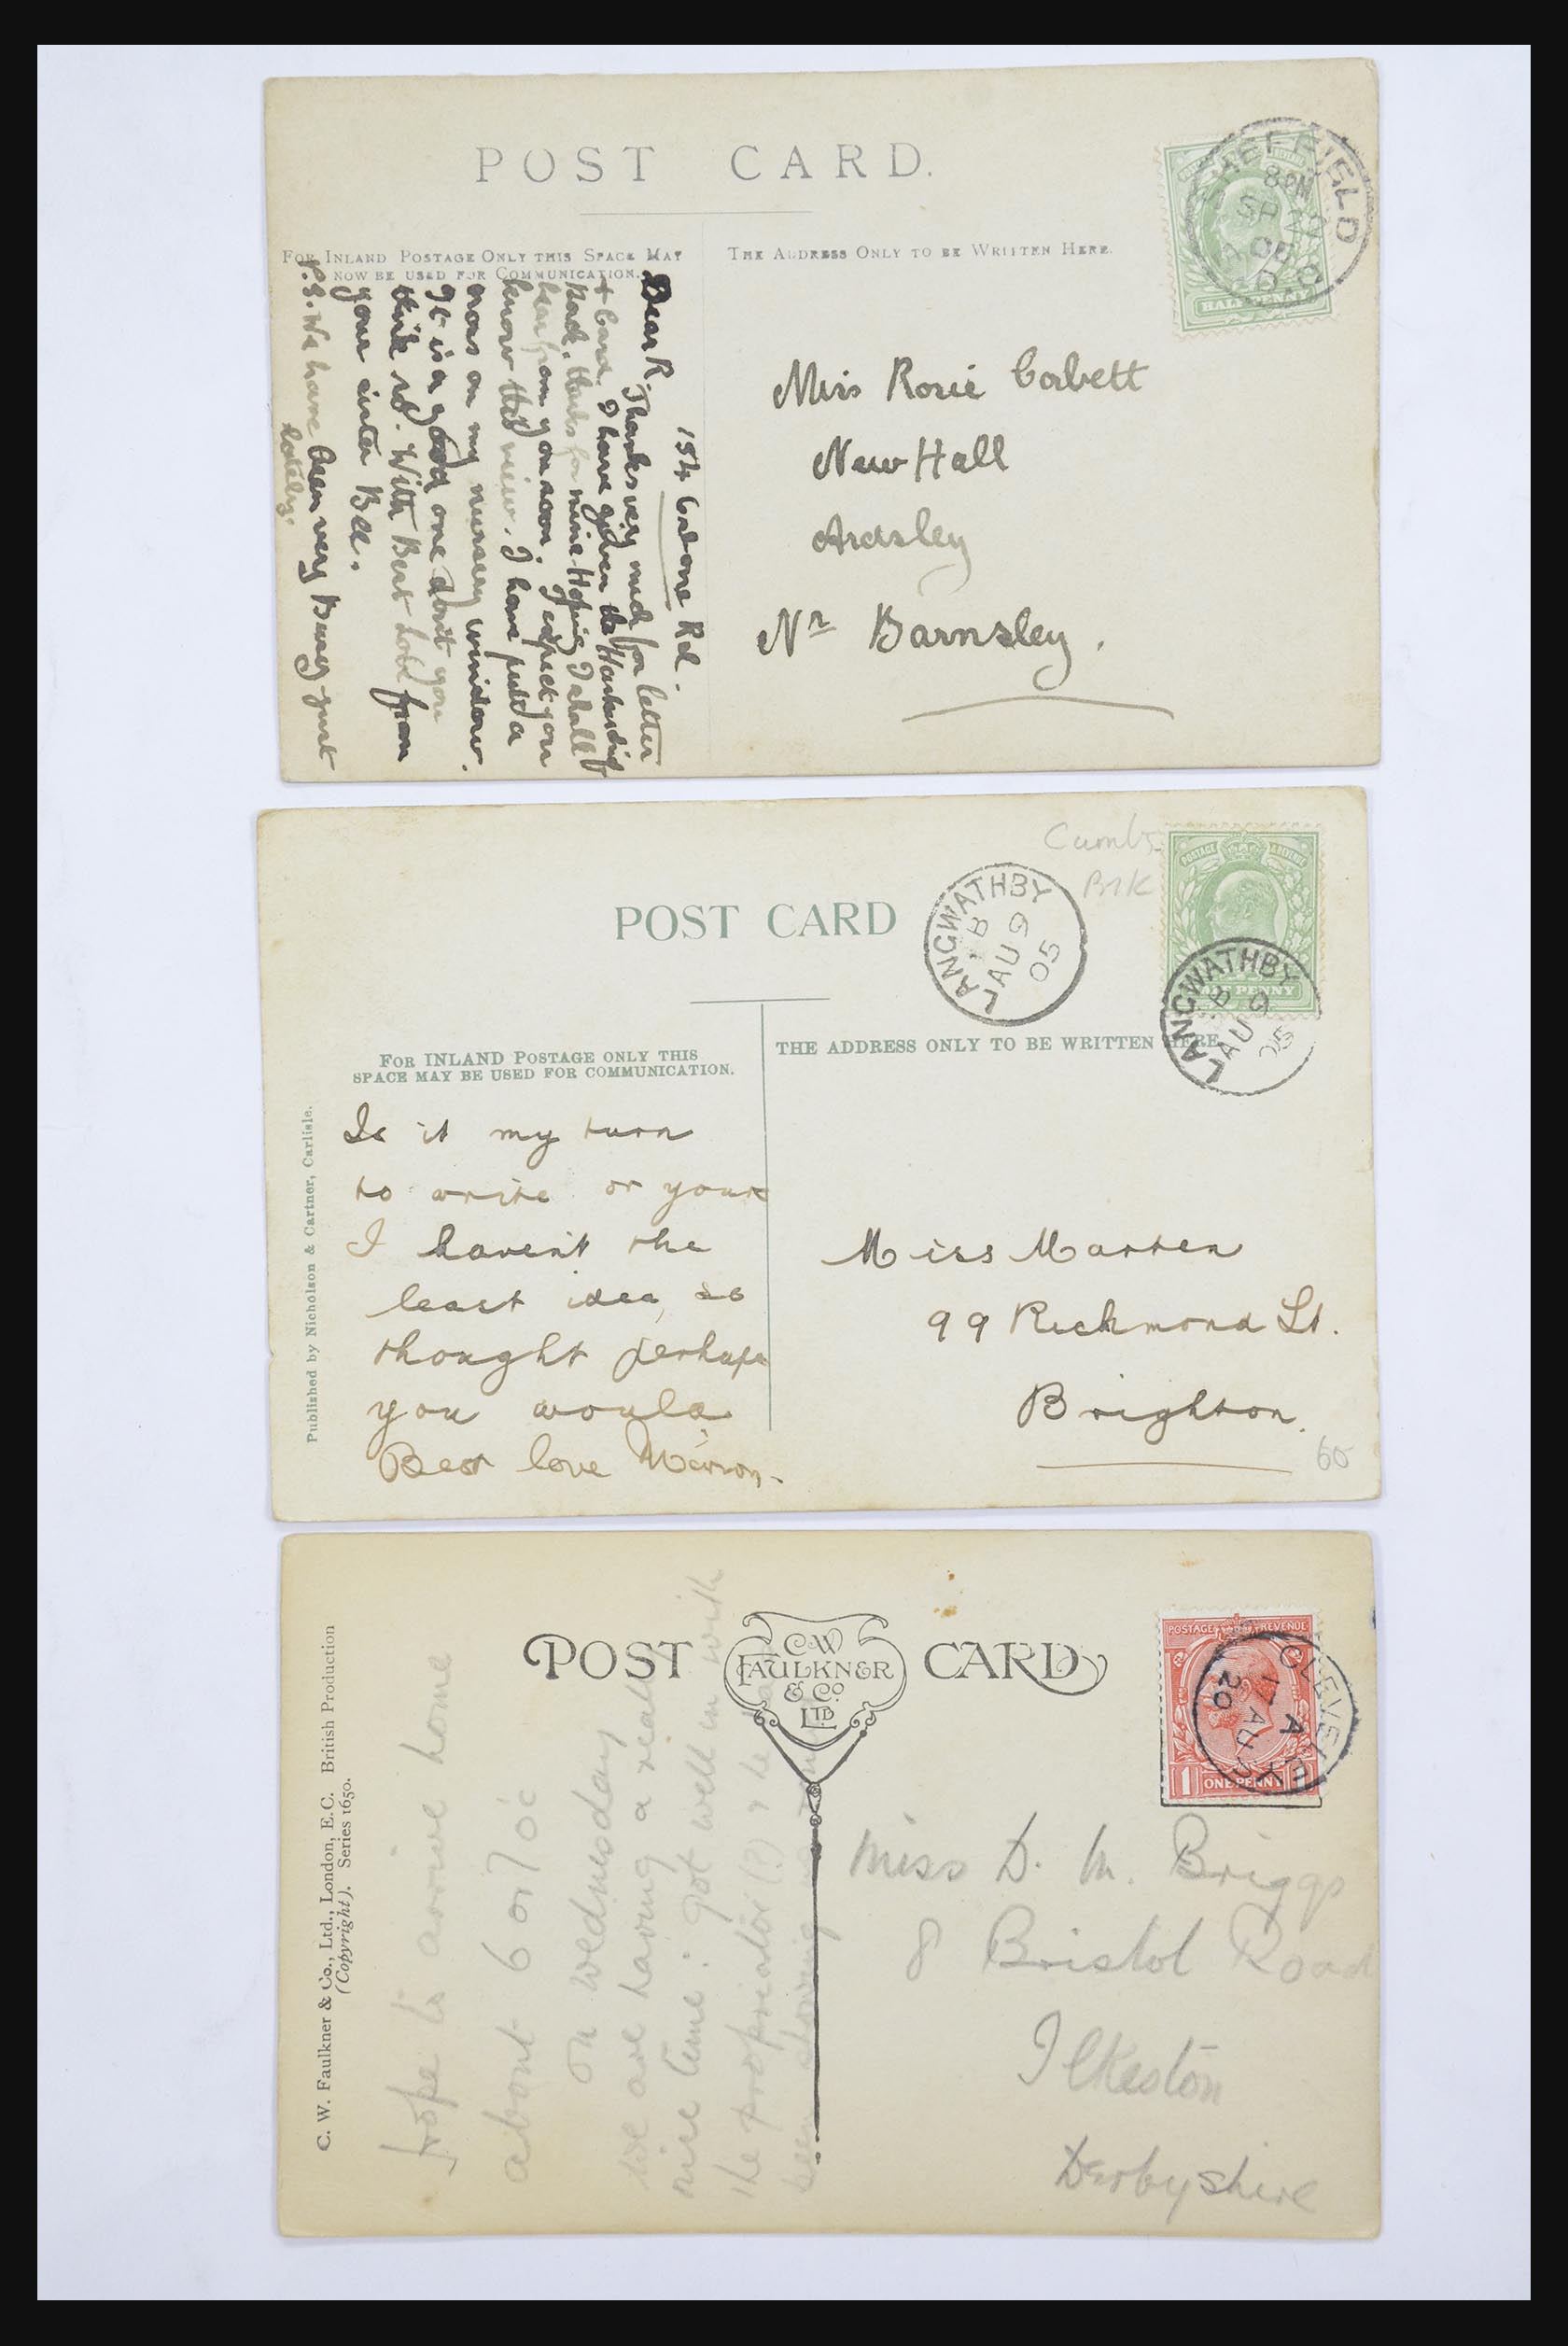 POST CARD.
FOR INLAND POSTAGE ONLY THIS SPACE MAY
NOW BE USED FOR COMMUNICATION.
THE ADDRESS ONLY TO BE WRITTEN HERE.
SHEFFIELD
8 PM
SP 22
00
HALFPENNY
154 Rd.
Dear R. Thanks very much for letter
+ Card. I have given the
back, thanks for mine. Hoping I shall
hear from you soon. I expect you
know this view. I have put a
on my nursery window.
It is a good one don't you
think so. With Best Love from
your sister Bee.
P.S. We have been very Busy just
lately.
Miss Rosie Corbett
New Hall
Ardsley
Nr Barnsley.
POST CARD
Cumb
LANGWATHBY
B
AU 9
05
POSTAGE & REVENUE
ONE PENNY
LANGWATHBY
B
AU 9
05
FOR INLAND POSTAGE ONLY THIS
SPACE MAY BE USED FOR COMMUNICATION.
THE ADDRESS ONLY TO BE WRITTEN HERE
Published by Nicholson & Cartner, Carlisle.
Is it my turn
to write or yours
I haven't the
least idea, so
thought perhaps
you would
Best love
Miss Marten
99 Richmond St.
Brighton.
60
POST CARD
C.W.
FAULKNER
& CO
LTD
POSTAGE REVENUE
1 ONE PENNY 1
CLEVELEYS
A
17 AU
20
C. W. Faulkner & Co., Ltd., London, E.C. British Production
(Copyright). Series 1650.
hope to arrive home
about 6 or 7 o'c
on Wednesday
we are having a really
nice time: got well in with
the proprietor (?) & he has
been showing
Miss D. M. Briggs
8 Bristol Road
Ilkeston
Derbyshire